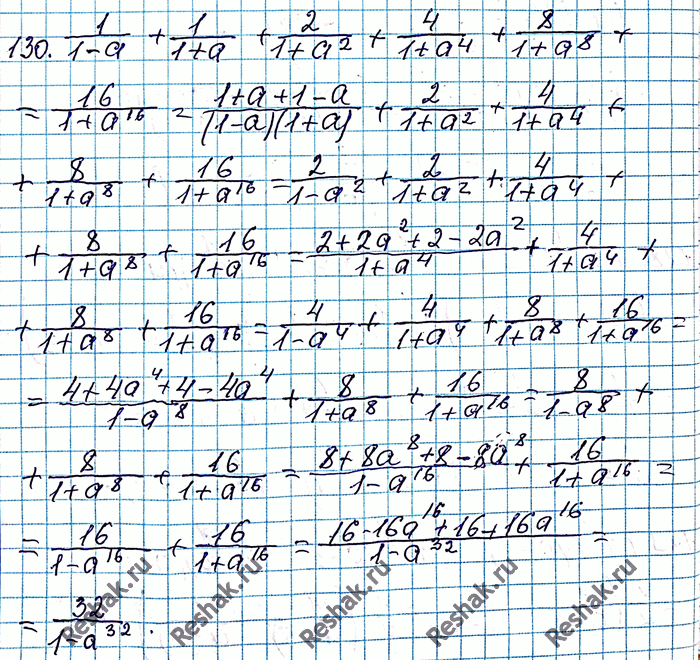 130. 1/(1-a) + 1/(1+a) + 2/(1+a²) + 4/(1+a⁴) + 8/(1+a⁸) +
= 16/(1+a¹⁶) = (1+a+1-a)/((1-a)(1+a)) + 2/(1+a²) + 4/(1+a⁴) +
+ 8/(1+a⁸) + 16/(1+a¹⁶) = 2/(1-a²) + 2/(1+a²) + 4/(1+a⁴) +
+ 8/(1+a⁸) + 16/(1+a¹⁶) = (2+2a²+2-2a²)/(1+a⁴) + 4/(1+a⁴) +
+ 8/(1+a⁸) + 16/(1+a¹⁶) = 4/(1-a⁴) + 4/(1+a⁴) + 8/(1+a⁸) + 16/(1+a¹⁶) =
= (4+4a⁴+4-4a⁴)/(1-a⁸) + 8/(1+a⁸) + 16/(1+a¹⁶) = 8/(1-a⁸) +
+ 8/(1+a⁸) + 16/(1+a¹⁶) = (8+8a⁸+8-8a⁸)/(1-a¹⁶) + 16/(1+a¹⁶) =
= 16/(1-a¹⁶) + 16/(1+a¹⁶) = (16-16a¹⁶+16+16a¹⁶)/(1-a³²) =
= 32/(1-a³²).
Reshak.ru Reshak.ru Reshak.ru Reshak.ru Reshak.ru